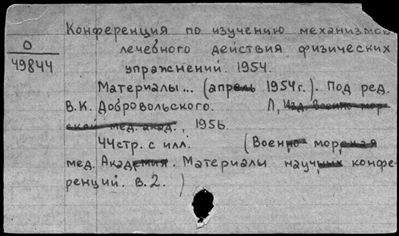 Конференция по изучению механизмов
О
49844
лечебного действия физических
упражнений. 1954.
Материалы... (апрель 1954г.). Под ред.
В.К. Добровольского. Л, Изд. Военно-мор-
ской мед. акад., 1956.
44стр. с илл. (Военно-морская
мед. Академия. Материалы научных конфе-
ренций. В.2. )